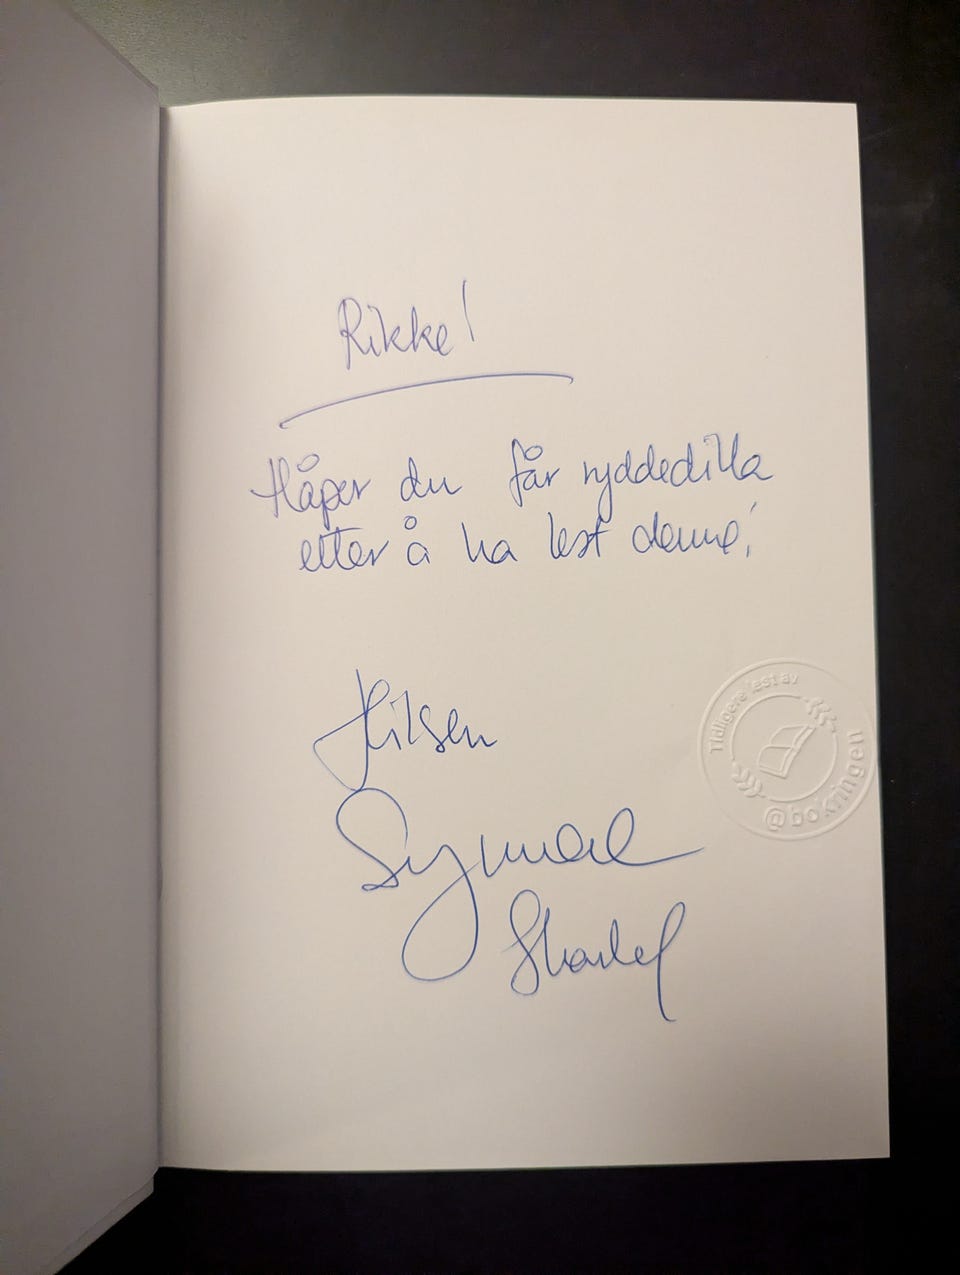 Rikke!
Håper du får ryddedilla
etter å ha lest denne!
Hilsen
Tidligere lest av
@bokringen